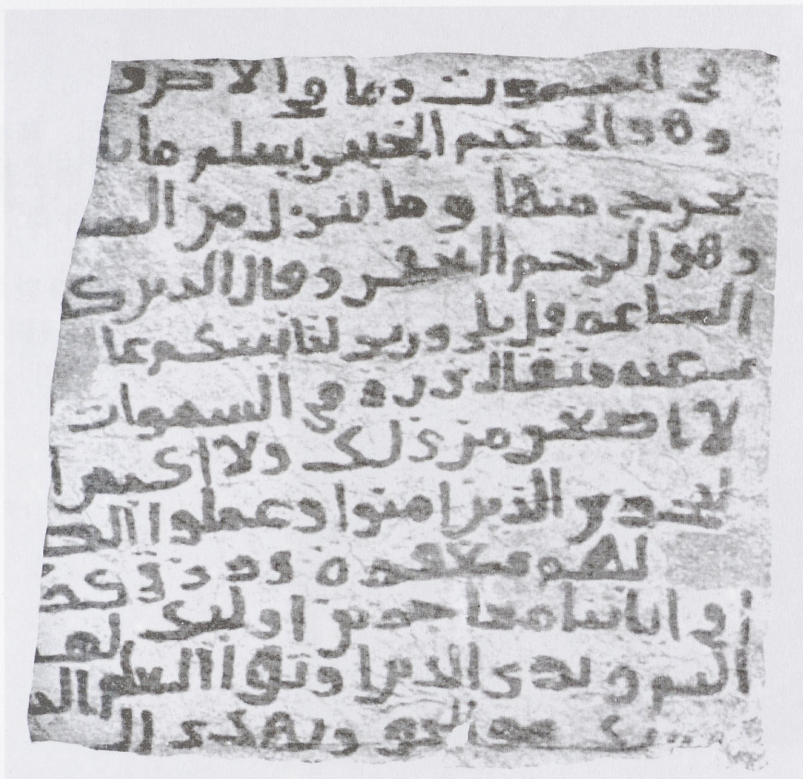 في السموت وما في الارض
وهو الحكيم الخبير يعلم ما
يخرج منها وما ينزل من السـ
وهو الرحيم الغفر وقال الذين كـ
الساعة قل بلى وربي لتاتينكم عا
عنه مثقال ذرة في السموات
لا اصغر من ذلك ولا اكبر ا
ليجزي الذين امنوا وعملوا الصـ
لهم مغفرة ورزق كـ
في اياتنا معاجزين اوليك لهـ
اليم ويرى الذين اوتوا العلم الـ
هو الحق ويهدي ال